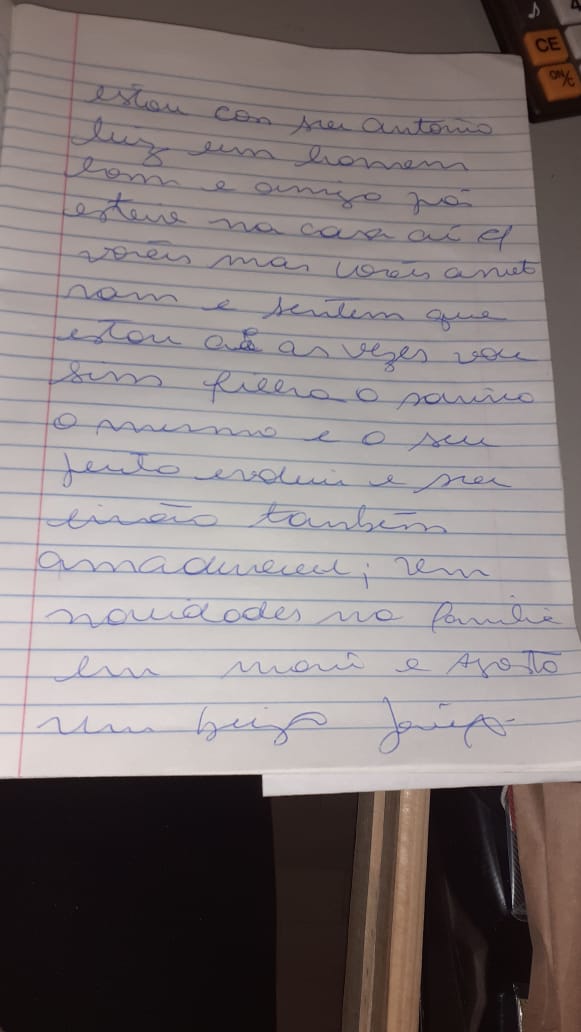 ♪
CE
ON/C
estou con seu antonio
luz um homem
bom e amigo já
esteve na casa aí d
voceis mas voceis
ram e sentem que
estou até as vezes vou
sim filha o
o mesmo e o seu
jeito evolui e seu
irmão também
amadureceu; vem
novidades na familia
em maio e Agosto
um beijo